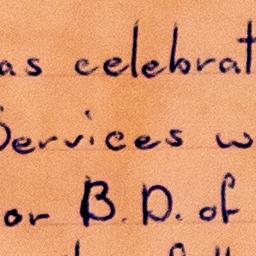 as celebrat
Services w
or B.D. of